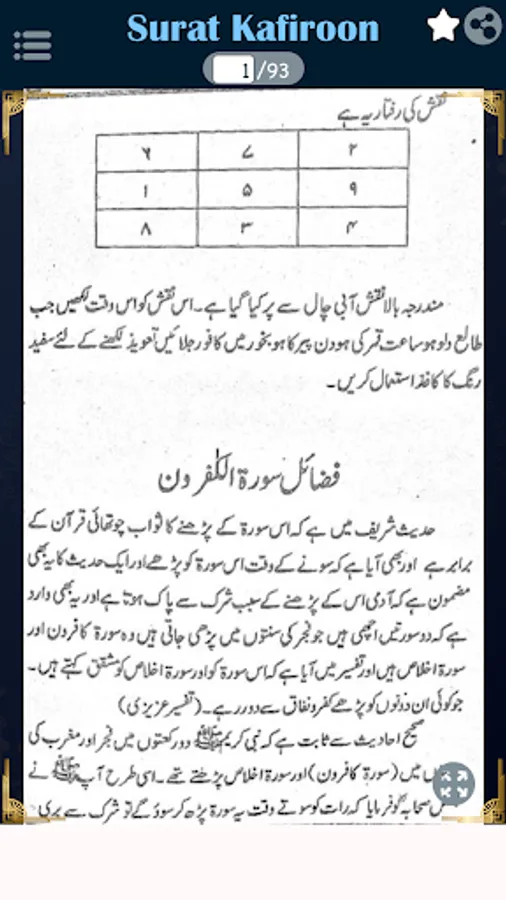 Surat Kafiroon
1/93
نقش کی رفتار یہ ہے
۶ ۷ ۲
۱ ۵ ۹
۸ ۳ ۴
مندرجہ بالا نقش آبی چال سے پر کیا گیا ہے۔ اس نقش کو اس وقت لکھیں جب
طالع دلو ہو ساعت قمر کی ہو دن پیر کا ہو بخور میں کافور جلائیں تعویذ لکھنے کے لئے سفید
رنگ کا کاغذ استعمال کریں۔
فضائل سورۃ الکٰفرون
حدیث شریف میں ہے کہ اس سورۃ کے پڑھنے کا ثواب چوتھائی قرآن کے
برابر ہے اور بھی آیا ہے کہ سونے کے وقت اس سورۃ کو پڑھے اور ایک حدیث کا یہ بھی
مضمون ہے کہ آدمی اس کے پڑھنے کے سبب شرک سے پاک ہوتا ہے اور یہ بھی وارد
ہے کہ دو سورتیں اچھی ہیں جو فجر کی سنتوں میں پڑھی جاتی ہیں وہ سورۃ کافرون اور
سورۃ اخلاص ہیں اور تفسیر میں آیا ہے کہ اس سورۃ کو اور سورۃ اخلاص کو مشقق کہتے ہیں۔
جو کوئی ان دونوں کو پڑھے کفر و نفاق سے دور رہے۔ (تفسیر عزیزی)
صحیح احادیث سے ثابت ہے کہ نبی کریم ﷺ دو رکعتوں میں فجر اور مغرب کی
میں (سورۃ کافرون) اور سورۃ اخلاص پڑھتے تھے۔ اسی طرح آپ ﷺ نے
صحابہ کو فرمایا کہ رات کو سوتے وقت یہ سورۃ پڑھ کر سوؤ گے تو شرک سے بری